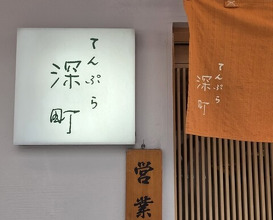 てんぷら
深町
てんぷら
深町
営業